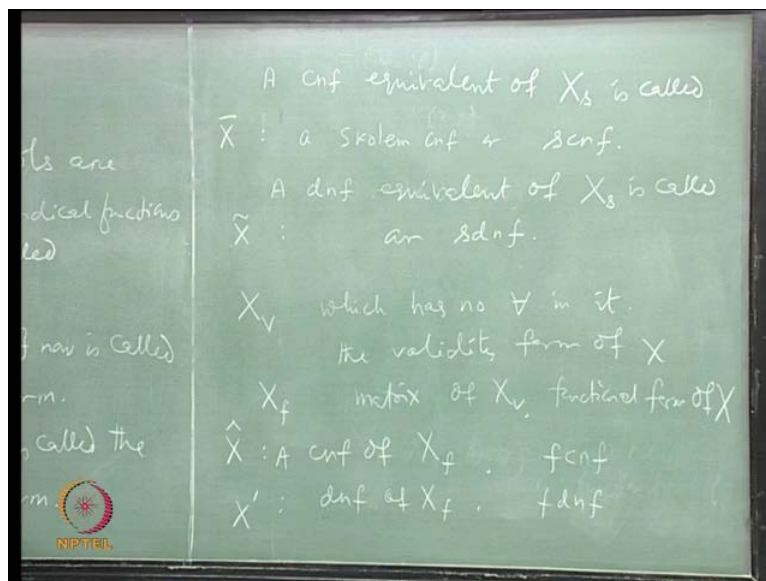 ls are
ndical functions
lled
f now is called
rm.
s called the
rm.
A cnf equivalent of Xs is called
X̅ : a Skolem cnf or scnf.
A dnf equivalent of Xs is called
X̃ : an sdnf.
Xv which has no ∀ in it.
the validity form of X
Xf matrix of Xv, functional form of X
X̂ : A cnf of Xf . fcnf
X' : dnf of Xf . fdnf
NPTEL